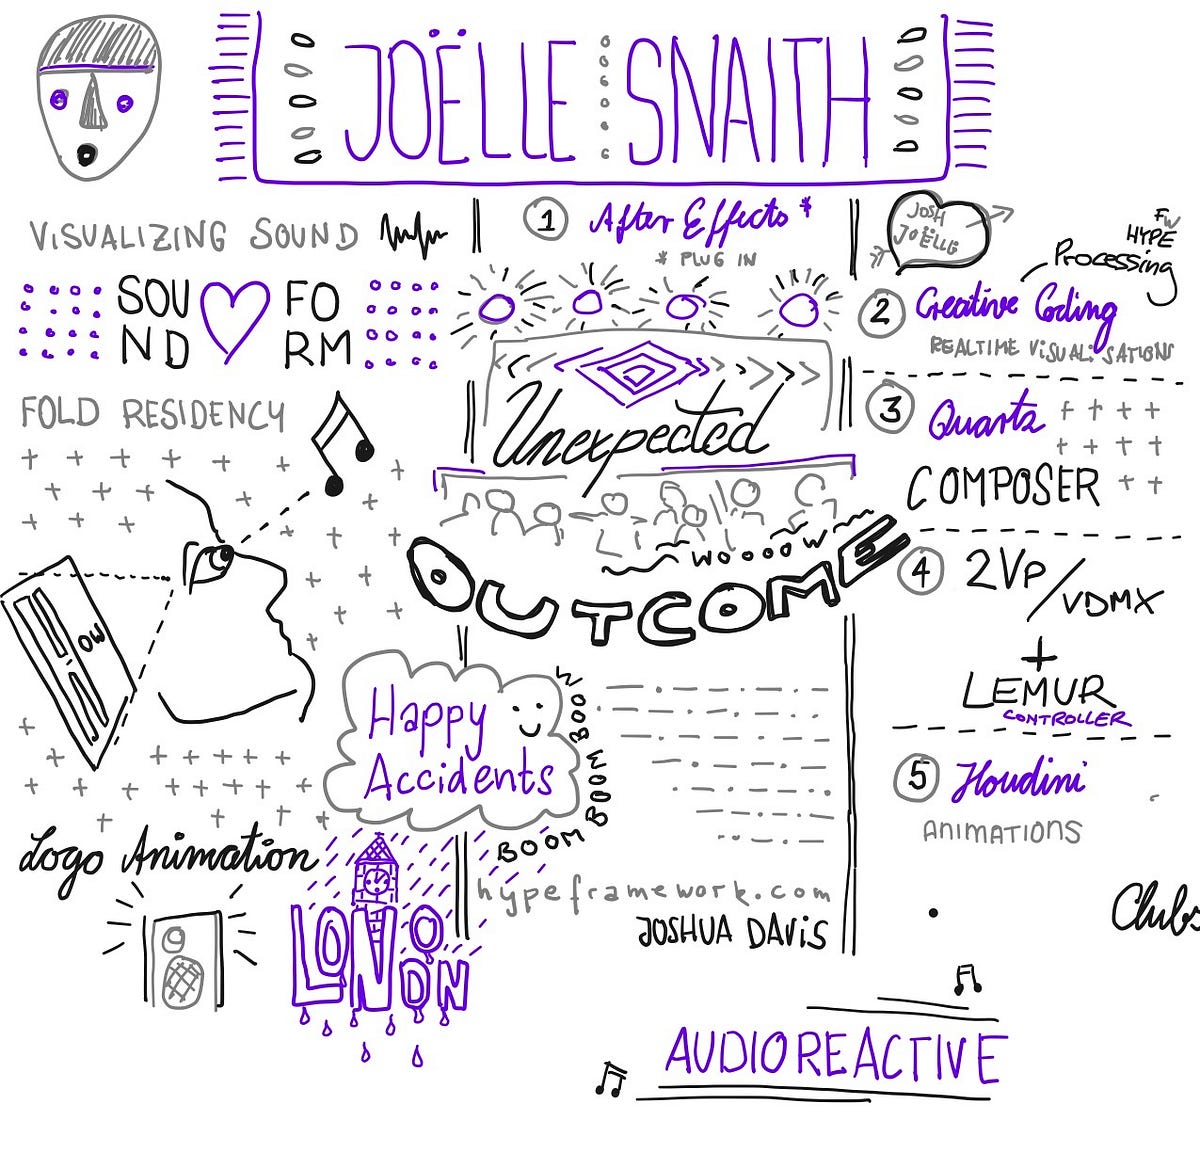 JOËLLE SNAITH
VISUALIZING SOUND
SOU
ND
FO
RM
FOLD RESIDENCY
OW
Logo Animation
1 After Effects*
* PLUG IN
Unexpected
WOOOOW
OUTCOME
Happy
Accidents
BOOM BOOM BOOM
LONDON
hypeframework.com
JOSHUA DAVIS
JOSH
JOËLLE
FW
HYPE
Processing
2 Creative Coding
REALTIME VISUALISATIONS
3 Quartz
COMPOSER
4 2VP/VDMX
+
LEMUR
CONTROLLER
5 Houdini
ANIMATIONS
Clubs
AUDIOREACTIVE